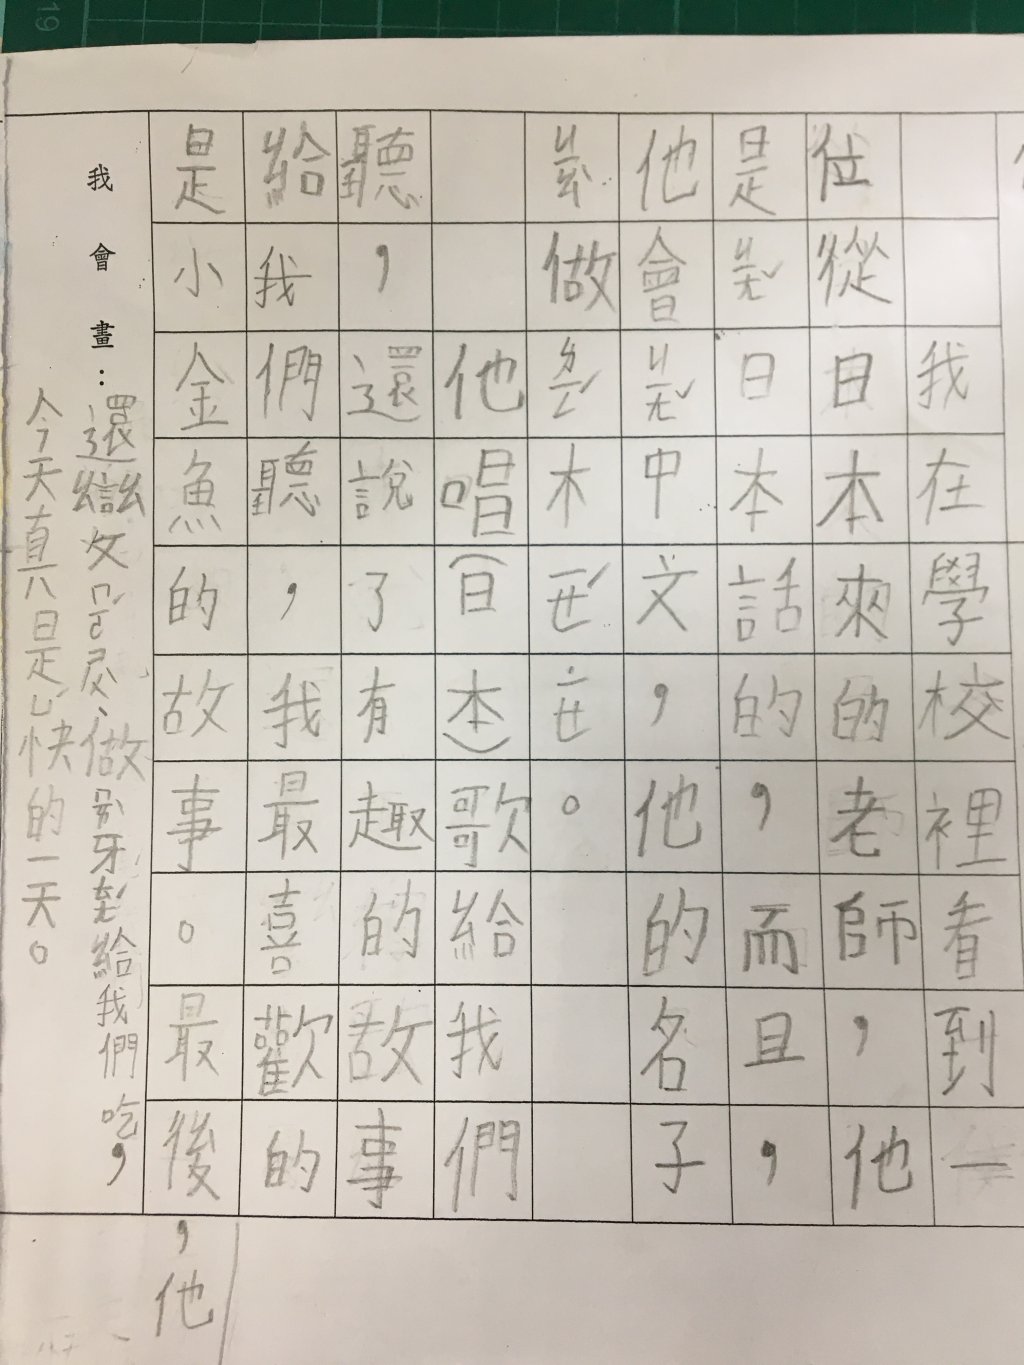 我在學校裡看到一
位從日本來的老師,他
是ㄐㄧㄤˇ日本話的,而且,
他會ㄐㄧㄤˇ中文,他的名子
ㄐㄧㄠ做ㄌㄧㄥˊ木ㄧㄝˊ˙ㄧㄝ。
他唱(日本)歌給我們
聽,還說了有趣的故事
給我們聽,我最喜歡的
是小金魚的故事。最後,他
我會畫:
還做給我們吃,
今天真是ㄩˋ快的一天。